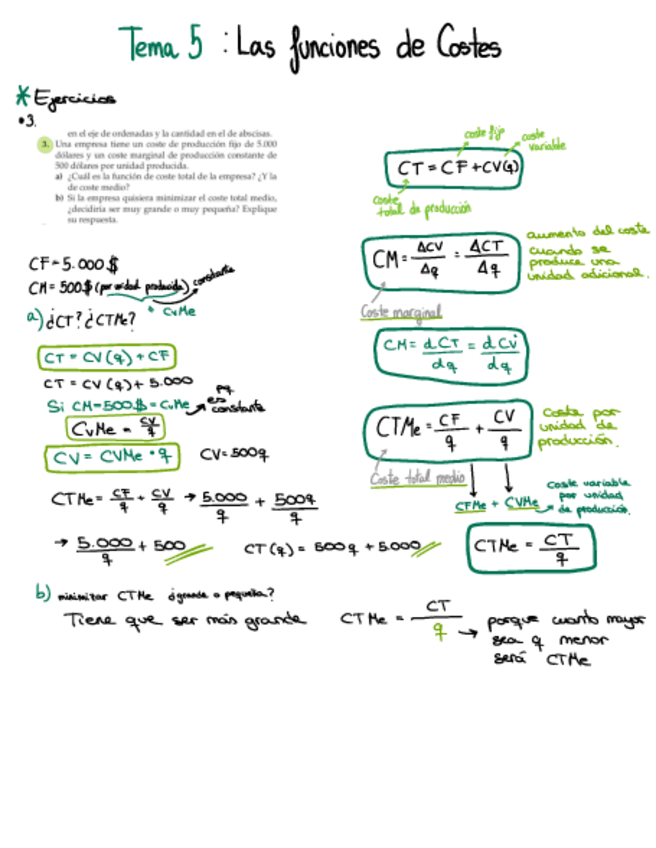 Tema 5 : Las funciones de Costes
* Ejercicios
•3.
en el eje de ordenadas y la cantidad en el de abscisas.
3. Una empresa tiene un coste de producción fijo de 5.000
dólares y un coste marginal de producción constante de
500 dólares por unidad producida.
a) ¿Cuál es la función de coste total de la empresa? ¿Y la
de coste medio?
b) Si la empresa quisiera minimizar el coste total medio,
¿decidiría ser muy grande o muy pequeña? Explique
su respuesta.
CF = 5.000 $
CM = 500 $ (por unidad producida) constante
* CvMe
a) ¿CT? ¿CTMe?
CT = CV (q) + CF
CT = CV (q) + 5.000
Si CM = 500 $ = CvMe → pq es constante
CvMe = CV/q
CV = CVMe • q
CV = 500q
CTMe = CF/q + CV/q → 5.000/q + 500q/q
→ 5.000/q + 500
CT (q) = 500q + 5.000
coste fijo
coste variable
CT = CF + CV(q)
coste total de producción
CM = ΔCV/Δq = ΔCT/Δq
aumento del coste
cuando se
produce una
unidad adicional.
Coste marginal
CM = dCT/dq = dCV/dq
CTMe = CF/q + CV/q
Coste por
unidad de
producción.
Coste total medio
CFMe + CVMe
Coste variable
por unidad
de producción.
CTMe = CT/q
b) minimizar CTMe ¿grande o pequeña?
Tiene que ser más grande
CTMe = CT/q → porque cuanto mayor
sea q menor
será CTMe